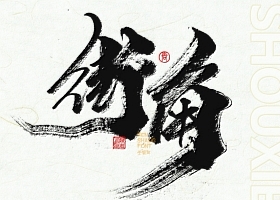 街角
SHOUXIE